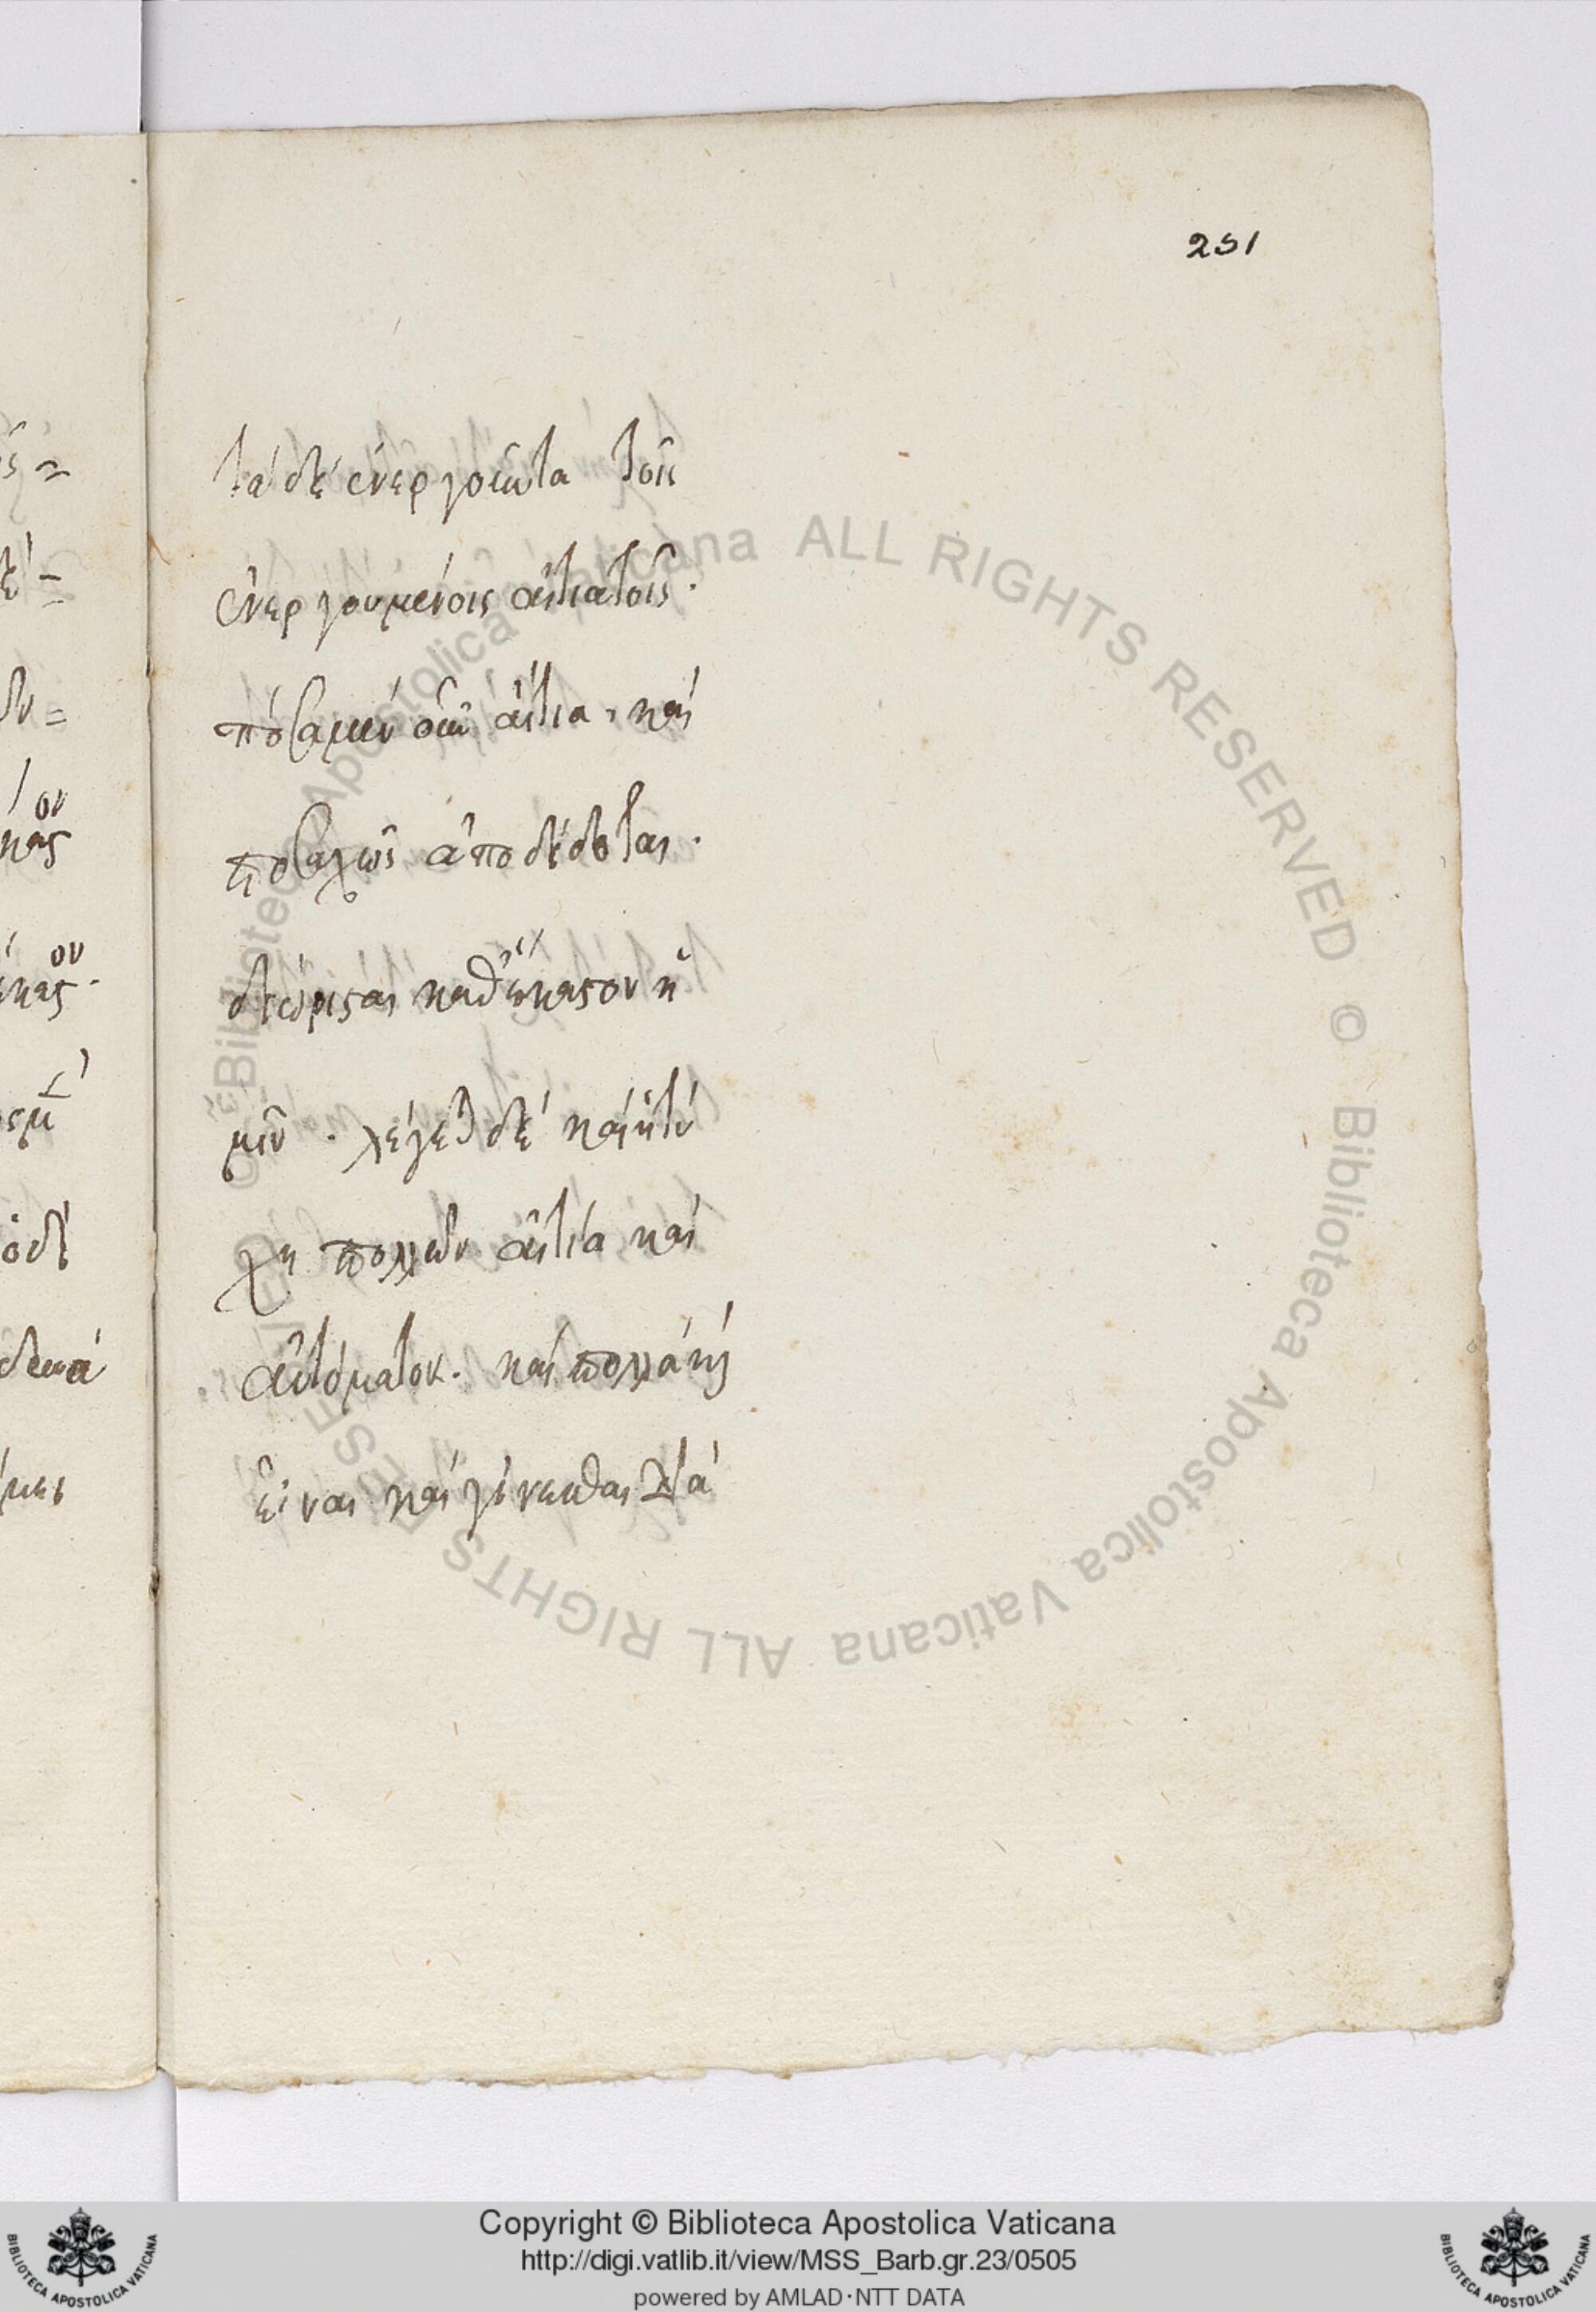 251
τὰ δὲ ἐνεργοῦντα τοῖς
ἐνεργουμένοις αἰτιατοῖς.
πόσα μὲν οὖν αἴτια, καὶ
ποσαχῶς ἀποδέδοται.
διώρισται καθ' ἕκαστον ἡ
μῖν. λέγεται δὲ καὶ ἡ τύ
χη πολλῶν αἰτία καὶ
αὐτόματον. καὶ πολλὰ καὶ
εἶναι καὶ γίνεσθαι διὰ
ALL RIGHTS RESERVED © Biblioteca Apostolica Vaticana ALL RIGHTS RESERVED © Biblioteca Apostolica Vaticana
Copyright © Biblioteca Apostolica Vaticana
http://digi.vatlib.it/view/MSS_Barb.gr.23/0505
powered by AMLAD·NTT DATA
BIBLIOTECA APOSTOLICA VATICANA
BIBLIOTECA APOSTOLICA VATICANA